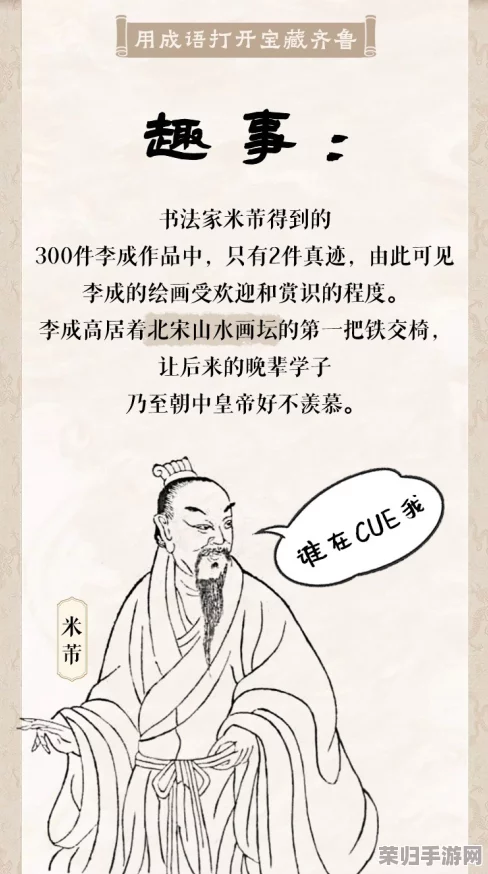 用成语打开宝藏齐鲁
趣事：
书法家米芾得到的
300件李成作品中，只有2件真迹，由此可见
李成的绘画受欢迎和赏识的程度。
李成高居着北宋山水画坛的第一把铁交椅，
让后来的晚辈学子
乃至朝中皇帝好不羡慕。
谁在CUE我
米芾
荣归手游网